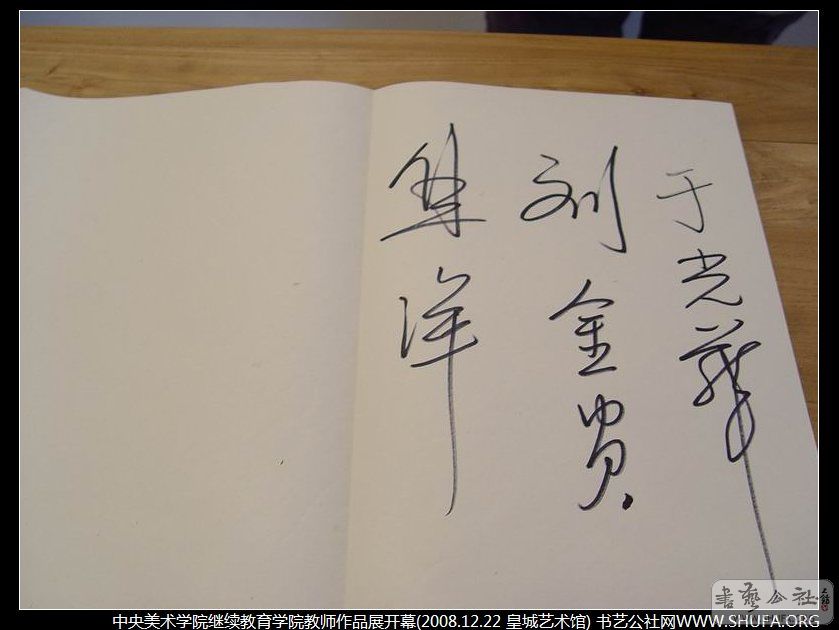 于光華
刘金贵
洋
書藝公社
中央美术学院继续教育学院教师作品展开幕(2008.12.22 皇城艺术馆) 书艺公社网WWW.SHUFA.ORG